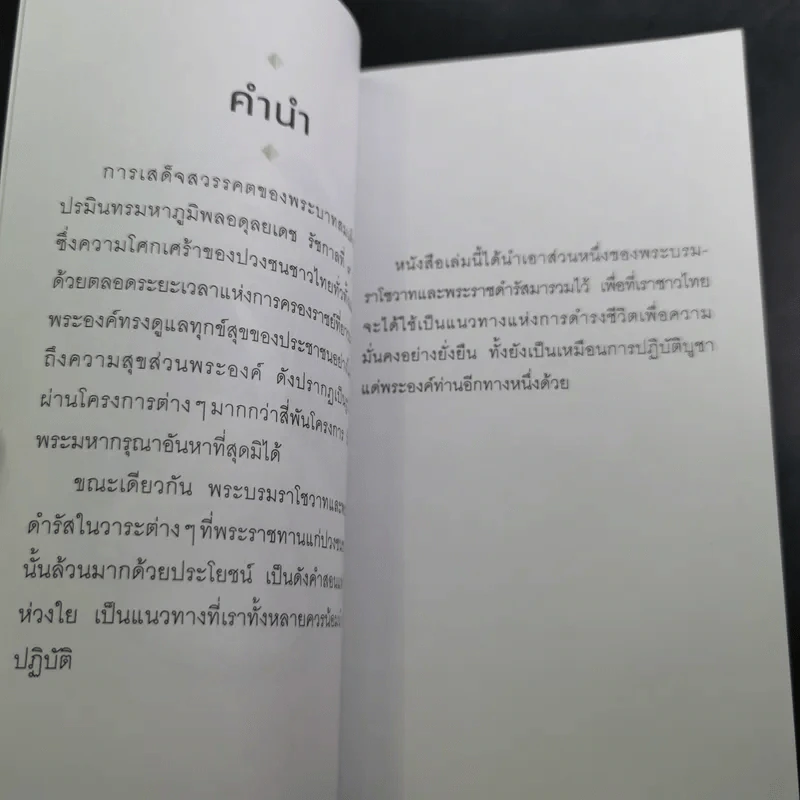 คำนำ
การเสด็จสวรรคตของพระบาทสม
ปรมินทรมหาภูมิพลอดุลยเดช รัชกาลที่
ซึ่งความโศกเศร้าของปวงชนชาวไทยทั่ว
ด้วยตลอดระยะเวลาแห่งการครองราชย์ที่
พระองค์ทรงดูแลทุกข์สุขของประชาชนอย่าง
ถึงความสุขส่วนพระองค์ ดังปรากฏเป็น
ผ่านโครงการต่างๆ มากกว่าสี่พันโครงการ
พระมหากรุณาอันหาที่สุดมิได้
ขณะเดียวกัน พระบรมราโชวาทและ
ดำรัสในวาระต่างๆ ที่พระราชทานแก่ปวงชน
นั้นล้วนมากด้วยประโยชน์ เป็นดังคำสอน
ห่วงใย เป็นแนวทางที่เราทั้งหลายควรน้อม
ปฏิบัติ
หนังสือเล่มนี้ได้นำเอาส่วนหนึ่งของพระบรม-
ราโชวาทและพระราชดำรัสมารวมไว้ เพื่อที่เราชาวไทย
จะได้ใช้เป็นแนวทางแห่งการดำรงชีวิตเพื่อความ
มั่นคงอย่างยั่งยืน ทั้งยังเป็นเหมือนการปฏิบัติบูชา
แด่พระองค์ท่านอีกทางหนึ่งด้วย